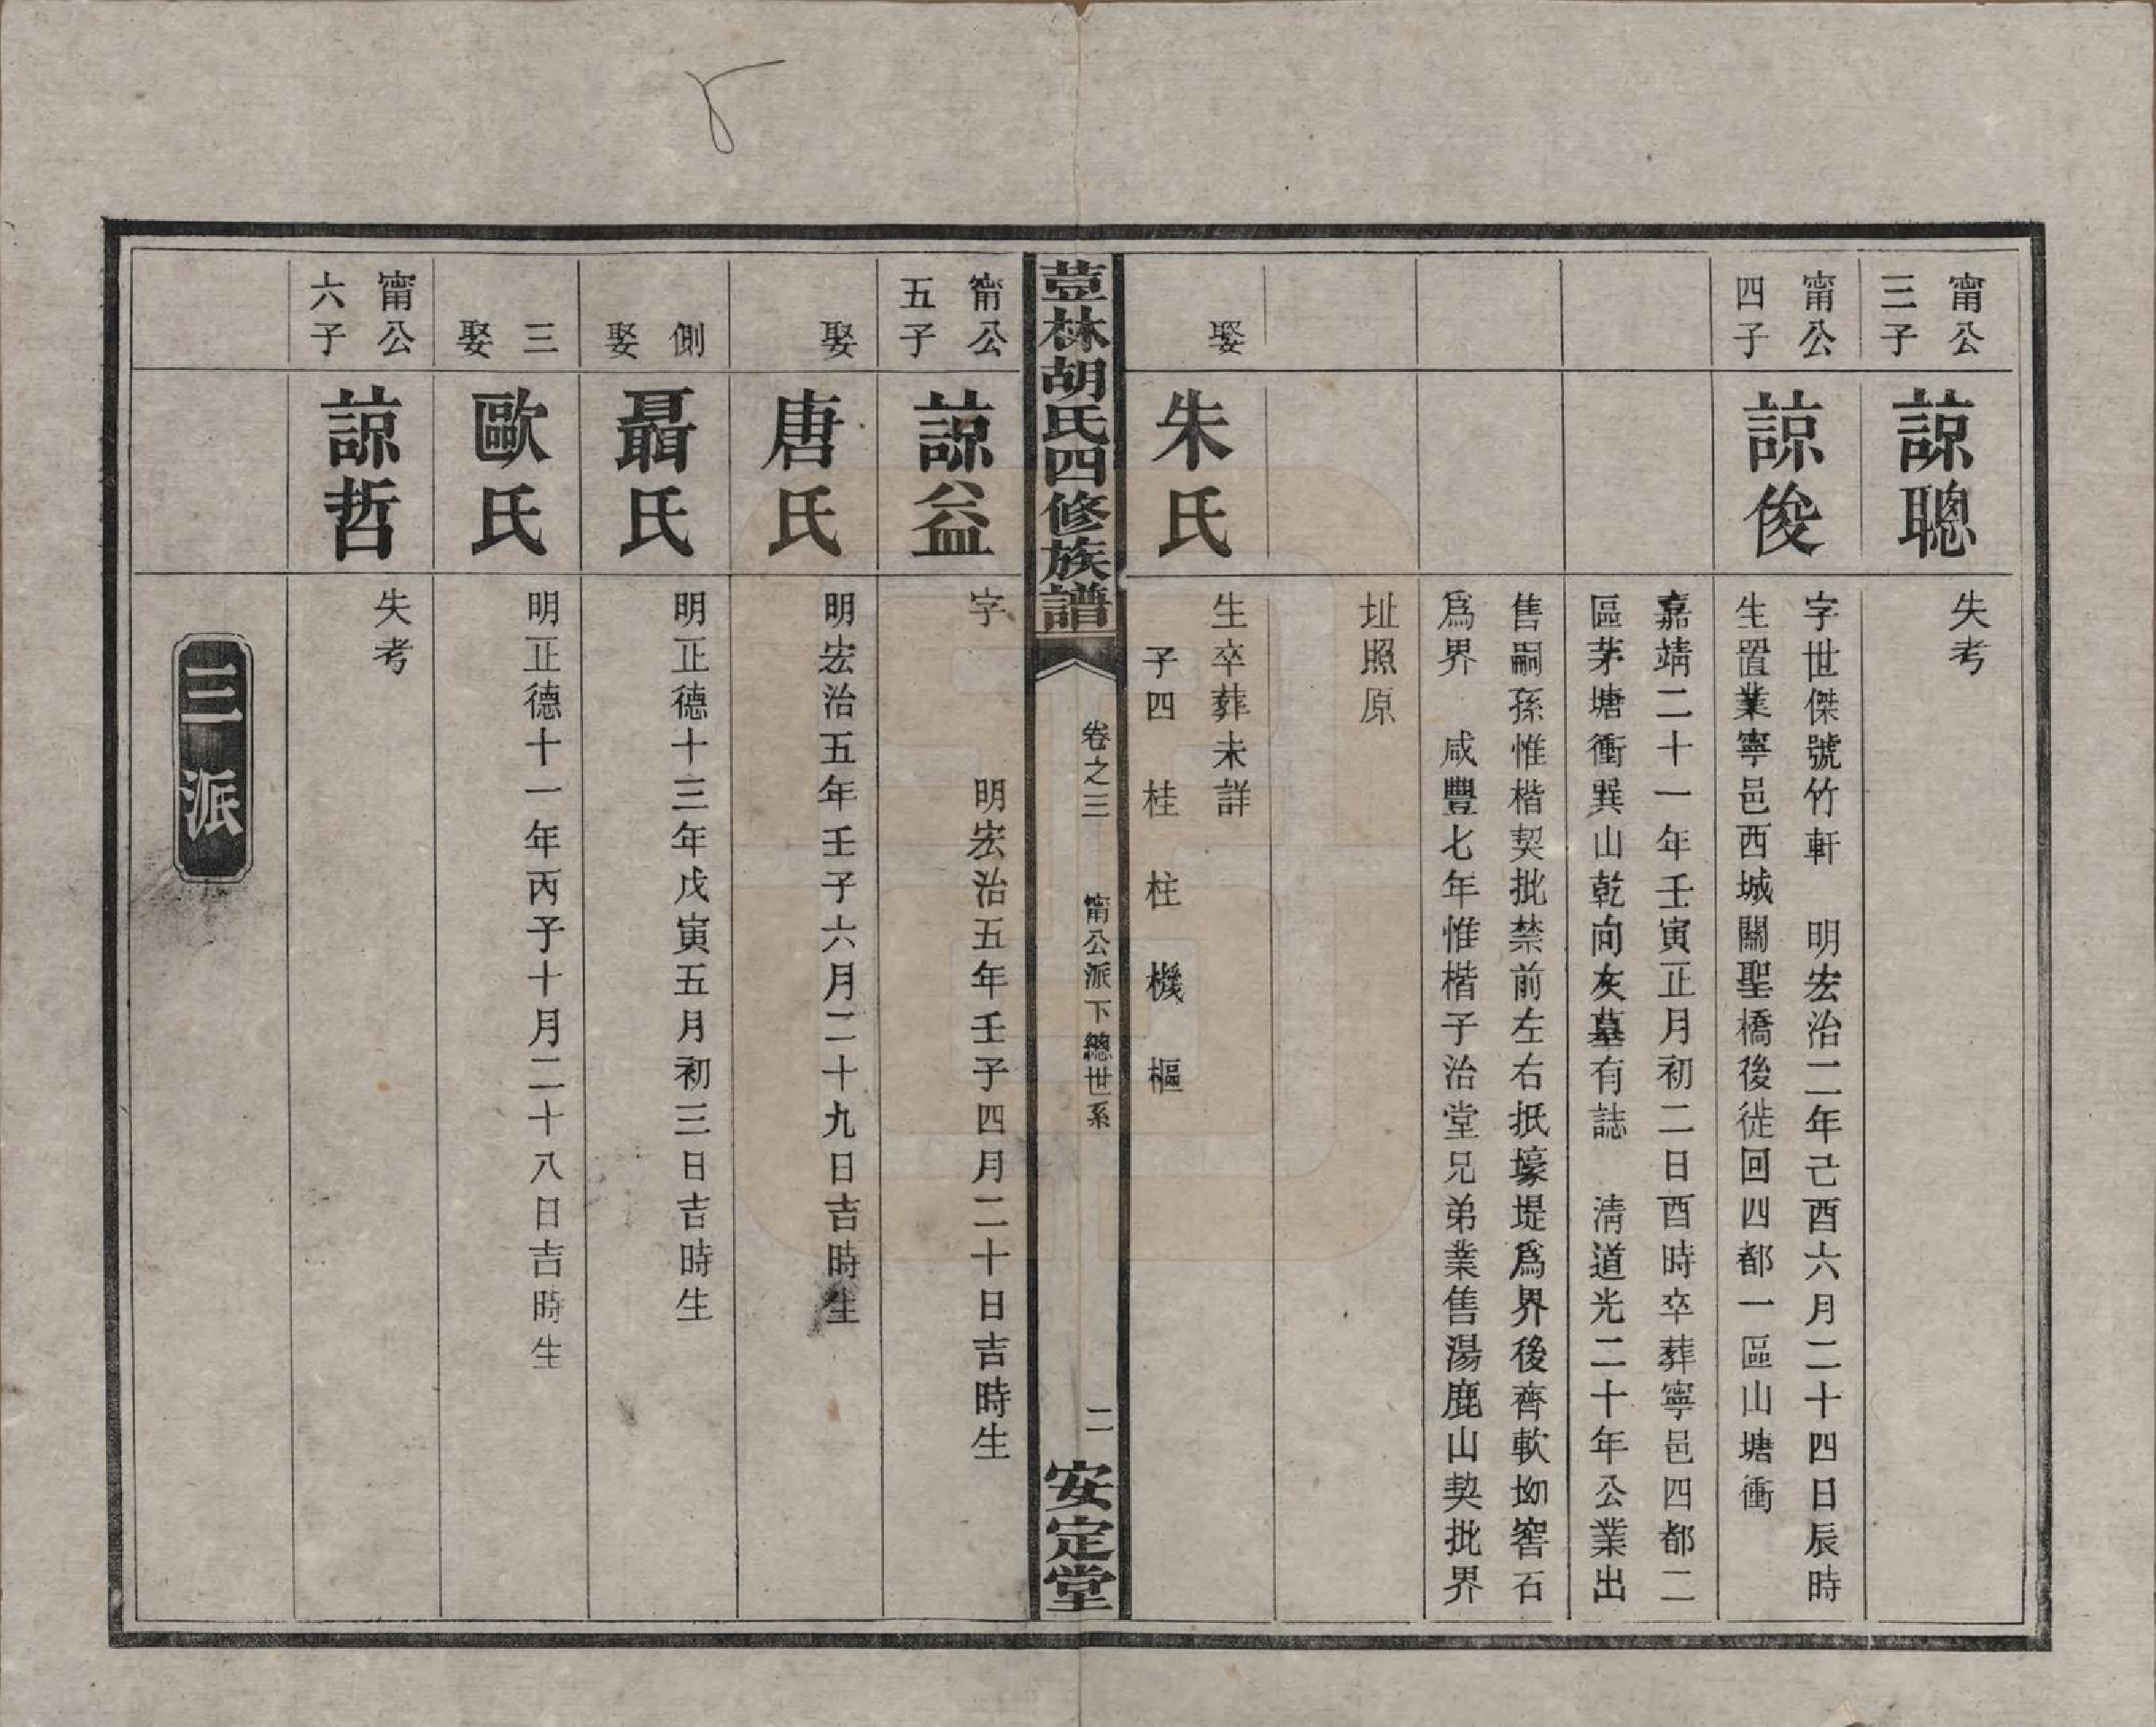 甯公
三子
諒聰
失考
甯公
四子
諒俊
字世傑號竹軒　明宏治二年己酉六月二十四日辰時
生置業寧邑西城關聖橋後徙回四都一區山塘衝
嘉靖二十一年壬寅正月初二日酉時卒葬寧邑四都二
區茅塘衝巽山乾向灰墓有誌　清道光二十年公業出
售嗣孫惟楷契批禁前左右抵壕堤爲界後齊軟坳窖石
爲界　咸豐七年惟楷子治堂兄弟業售湯鹿山契批界
址照原
娶
朱氏
生卒葬未詳
子四　桂　柱　機　樞
荳林胡氏四修族譜
卷之三　甯公派下總世系
二
安定堂
甯公
五子
諒益
字　　　明宏治五年壬子四月二十日吉時生
娶
唐氏
明宏治五年壬子六月二十九日吉時生
側
娶
聶氏
明正德十三年戊寅五月初三日吉時生
三
娶
歐氏
明正德十一年丙子十月二十八日吉時生
甯公
六子
諒哲
失考
三派